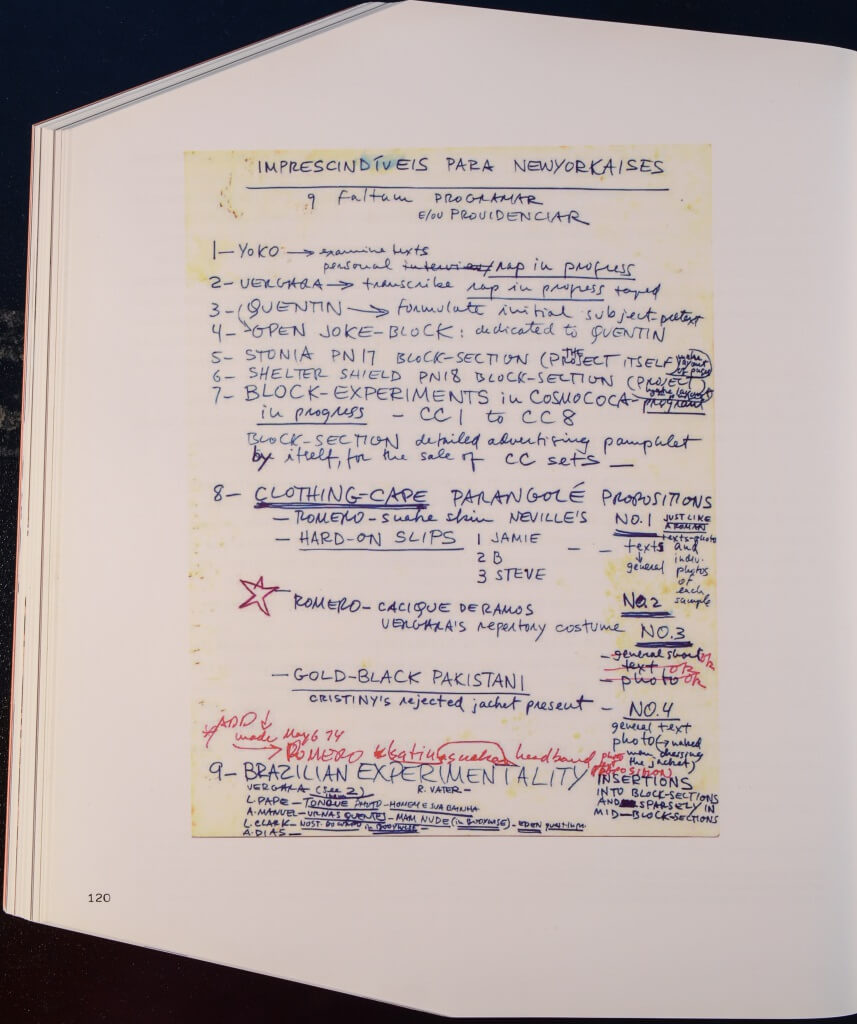 IMPRESCINDÍVEIS PARA NEWYORKAISES
q faltam PROGRAMAR
E/OU PROVIDENCIAR
1— YOKO → examine texts
personal interview/rap in progress
2— VERGARA → transcribe rap in progress taped
3— QUENTIN → formulate initial subject-pretext
4— OPEN JOKE-BLOCK: dedicated to QUENTIN
5— STONIA PN17 BLOCK-SECTION (THE PROJECT ITSELF make layout of pages
6— SHELTER SHIELD PN18 BLOCK-SECTION (PROJECT)
7— BLOCK-EXPERIMENTS in COSMOCOCA- program
in progress — CC1 to CC8
BLOCK-SECTION detailed advertising pamphlet
by itself, for the sale of CC sets —
8— CLOTHING-CAPE PARANGOLÉ PROPOSITIONS
— ROMERO - snake skin NEVILLE'S NO.1 JUST LIKE A ROMAN
— HARD-ON SLIPS 1 JAMIE — — texts and
2 B general
3 STEVE
texts-photo
indiv.
photos
of
each
sample
☆ ROMERO— CACIQUE DE RAMOS No.2
VERGARA'S repertory costume NO.3
— general short ok
— text ok
— photo ok
— GOLD-BLACK PAKISTANI
CRISTINY'S rejected jacket present — NO.4
general text
photo (→ naked
man dressing
the jacket)
ADD ↓
made May 6 74
→ ROMERO headband
9— BRAZILIAN EXPERIMENTALITY INSERTIONS
VERGARA (see 2) R. VATER— INTO BLOCK-SECTIONS
L. PAPE— AND SPARSELY IN
A. MANUEL— URNAS QUENTES— MAM NUDE (in BODYWISE)— MID-BLOCK-SECTIONS
L. CLARK— in BODYWISE — EDEN
A. DIAS—
120